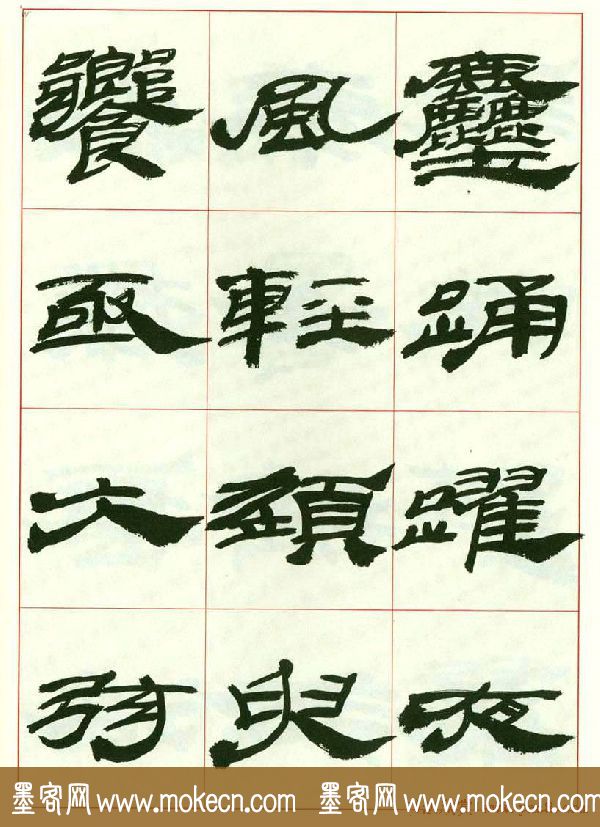 踊躍夜
風輕頸臾
饗亟弦
墨客网 www.mokecn.com 墨客网 www.mokecn.com